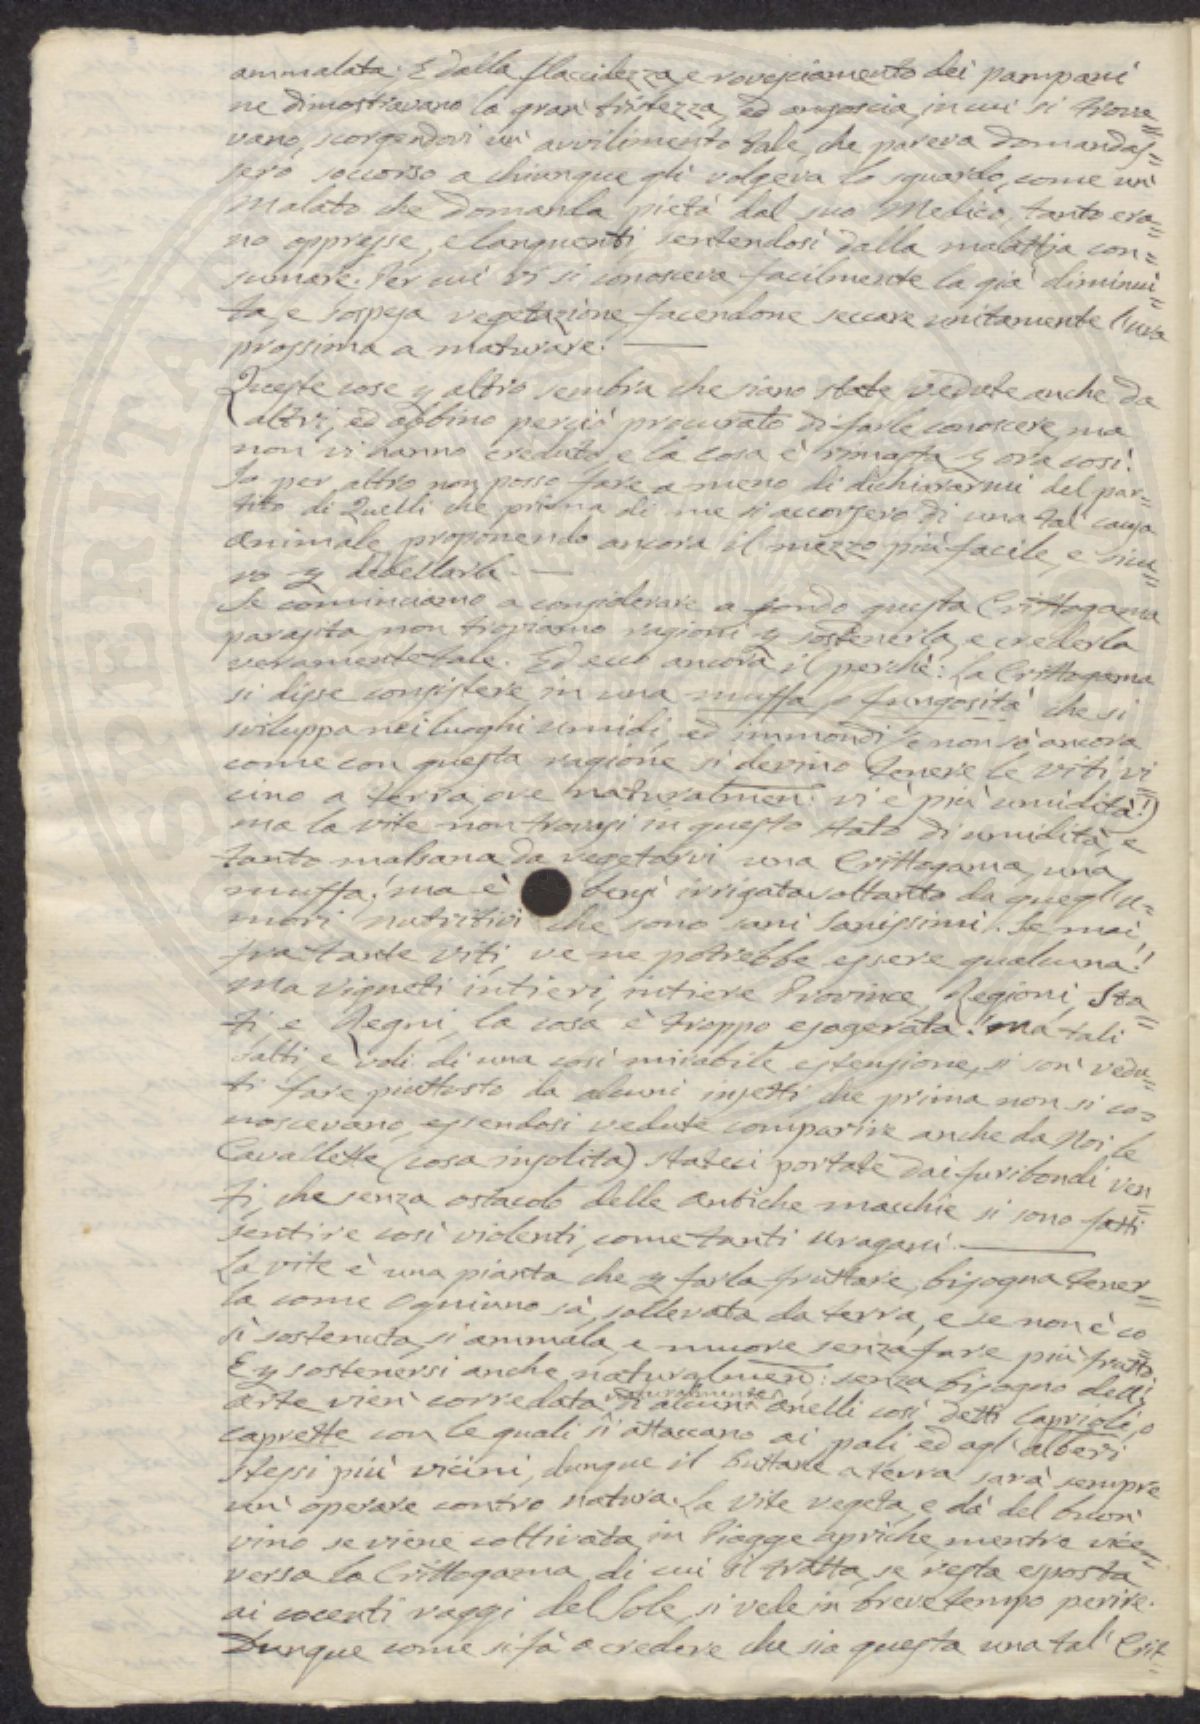 ammalata: E dalla flaccidezza, e rovesciamento dei pampani
ne dimostravano la gran tristezza, ed angoscia, in cui si trova=
vano, scorgendovi un' avvilimento tale, che pareva domandas=
sero soccorso a chiunque gli volgeva lo sguardo, come un'
Malato che domanda pietà dal suo Medico, tanto era=
no oppresse, e languenti, sentendosi dalla malattia con=
sumare. Per cui vi si conosceva facilmente la già diminui=
ta, e sospesa vegetazione facendone seccare unitamente l'uva
prossima a maturare. —
Queste cose y altro sembra che siano state vedute anche da
altri, ed abbino perciò procurato di farle conoscere, ma
non vi hanno creduto, e la cosa è rimasta y ora così.
Io per altro non posso fare a meno di dichiararmi del par=
tito di Quelli che prima di me si accorsero di una tal causa
animale, proponendo ancora il mezzo più facile, e sicu=
ro y debellarla. —
Se cominciamo a considerare a fondo questa Crittogama
parasita, non troviamo ragioni y sostenerla, e crederla
veramente tale. Ed ecco ancora il perchè: La Crittogama
si disse consistere in una muffa, o fungosità che si
sviluppa nei luoghi umidi, ed immondi (e non sò ancora
come con questa ragione si devino tenere le viti vi
cino a terra, ove naturalmen: vi è più umidità!)
ma la vite non trovasi in questo stato di umidità, e
tanto malsana da vegetarvi una Crittogama, una
muffa! ma è bensì irrigata soltanto da quegl'u=
mori nutritivi che sono sani sanissimi. Se mai
fra tante viti, ve ne potrebbe essere qualcuna!
Ma vigneti intieri, intiere Province, Regioni, Sta=
ti, e Regni, la cosa è troppo esagerata! Ma tali
salti, e voli di una così mirabile estensione, si son' vedu=
ti fare piuttosto da alcuni insetti che prima non si co=
noscevano, essendosi vedute comparire anche da Noi le
Cavallette (cosa insolita) stateci portate dai furibondi ven=
ti, che senza ostacolo delle antiche macchie si sono fatti
sentire così violenti, come tanti uragani. —
La vite è una pianta che y farla fruttare, bisogna tener=
la come ogniuno sà, sollevata da terra, e se non è co
sì sostenuta, si ammala, e muore senza fare più frutto
E y sostenersi anche naturalmen: senza bisogno dell'
arte vien' corredata naturalmente di alcuni anelli così detti Caprioli, o
caprette con le quali si attaccano ai pali, ed agl'alberi
stessi più vicini, dunque il buttarle a terra sarà sempre
un' operare contro natura. La Vite vegeta, e dà del buon'
vino se viene coltivata in Piagge apriche, mentre vice=
versa la Crittogama di cui si tratta, se resta esposta
ai cocenti raggi del Sole, si vede in breve tempo perire.
Dunque come si fà a credere che sia questa una tal' Crit=